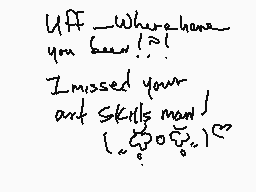 Uff _Where have
you been!?!
I missed your
art skills man!